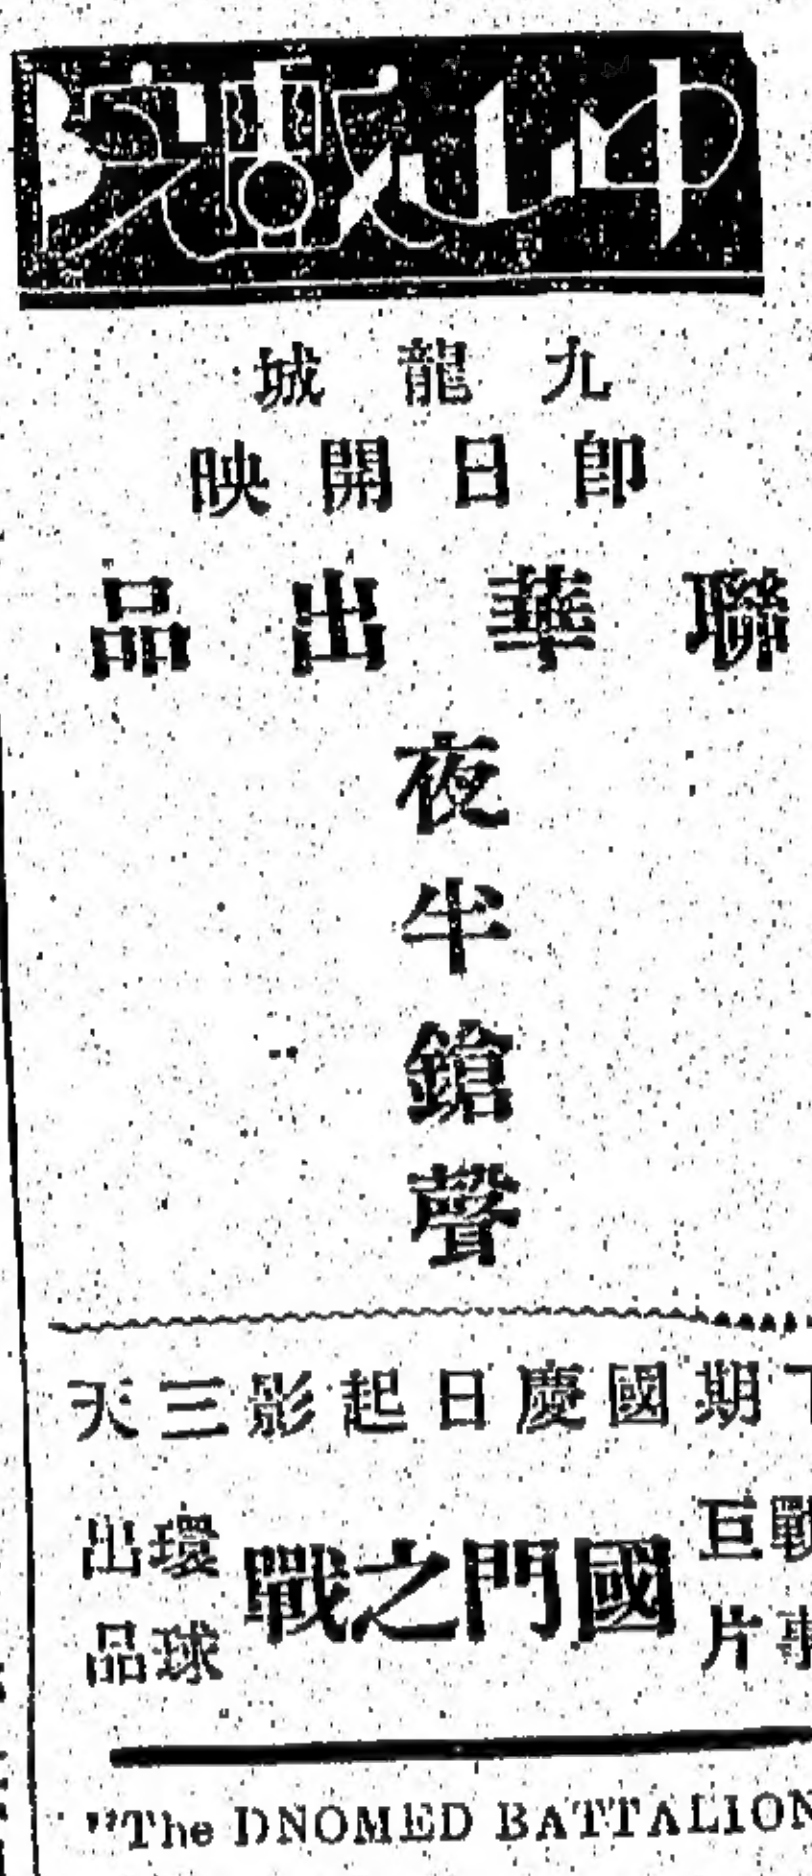 中山戲院
九龍城
即日開映
聯華出品
夜半鎗聲
下期國慶日起影三天
戰事巨片
國門之戰
環球出品
"The DNOMED BATTALION